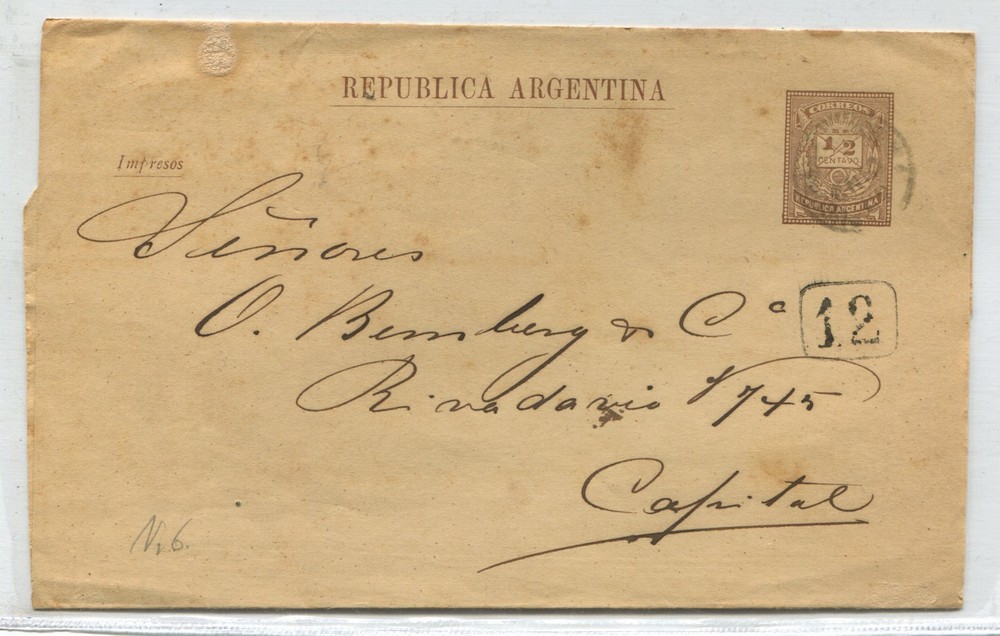 REPUBLICA ARGENTINA
CORREOS
1/2
CENTAVO
REPUBLICA ARGENTINA
Impresos
Señores
O. Bemberg & Cª
12
Rivadavia 745
Capital
Nr 6.